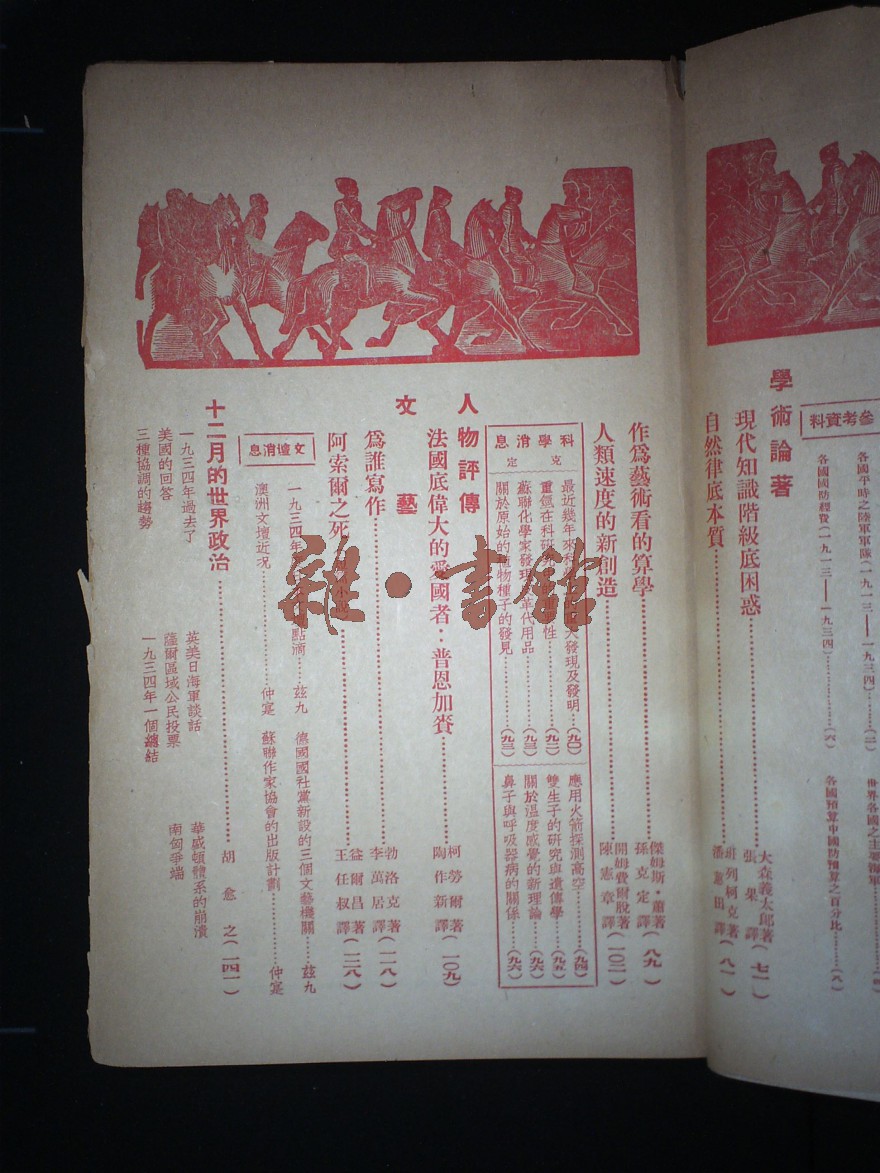 參考資料
各國平時之陸軍軍隊(一九一三——一九三四)……(二)
世界各國之主要海軍
各國國防經費(一九一三——一九三四)……(六)
各國預算中國防預算之百分比……(八)
學術論著
現代知識階級底困惑……大森義太郎著 張杲譯(七一)
自然律底本質……班列柯克著 潘蕙田譯(八一)
作爲藝術看的算學……傑姆斯·蕭著 孫克定譯(八九)
人類速度的新創造……開姆費爾脫著 陳憲章譯(一〇二)
科學消息
克定
最近幾年來科 大發現及發明…(九〇)
應用火箭探測高空……(九四)
重氫在科 性……(九二)
雙生子的研究與遺傳學……(九五)
蘇聯化學家發現 代用品……(九三)
關於溫度感覺的新理論……(九六)
關於原始的植物種子的發見……(九三)
鼻子與呼吸器病的關係……(九六)
人物評傳
法國底偉大的愛國者：普恩加賚……柯勞爾著 陶作新譯(一〇九)
文藝
爲誰寫作……勃洛克著 李萬居譯(一一八)
阿索爾之死 ……益爾昌著 王任叔譯(一二八)
文壇消息
一九三四年 點滴……茲九
德國國社黨新設的三個文藝機關……茲九
澳洲文壇近况……仲寔
蘇聯作家協會的出版計劃……仲寔
十二月的世界政治……胡愈之(一四一)
一九三四年過去了
英美日海軍談話
華盛頓體系的崩潰
美國的回答
薩爾區域公民投票
南匈爭端
三種協調的趨勢
一九三四年一個總結
雜·書館